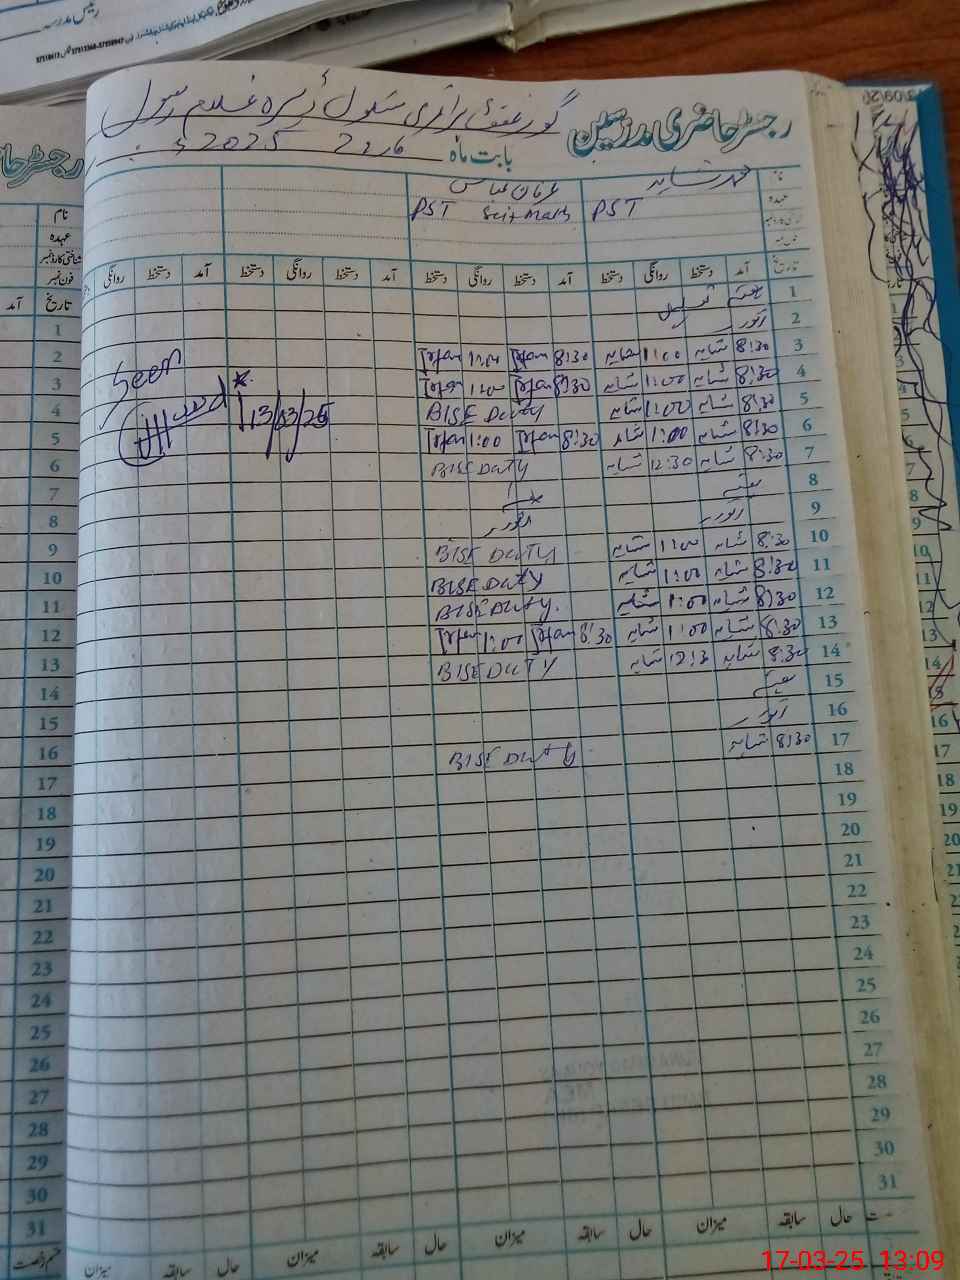 رئیس مدرسہ
رجسٹر حاضری مدرسین گورنمنٹ پرائمری سکول ڈیرہ غلام رسول
بابت ماہ مارچ 2025ء
نام محمد شاہد عرفان عباس
عہدہ PST PST Sci-Math
تاریخ آمد دستخط روانگی دستخط آمد دستخط روانگی دستخط آمد دستخط روانگی دستخط آمد دستخط روانگی
1 ہفتہ
2 اتوار
3 8:30 شاہد 11:00 شاہد 8:30 Irfan 11:00 Irfan
4 8:30 شاہد 1:00 شاہد 8:30 Irfan 1:00 Irfan
5 8:30 شاہد 1:00 شاہد BISE Duty
6 8:30 شاہد 1:00 شاہد 8:30 Irfan 1:00 Irfan
7 8:30 شاہد 12:30 شاہد BISE Duty
8 ہفتہ ہفتہ
9 اتوار اتوار
10 8:30 شاہد 1:00 شاہد BISE DUTY
11 8:30 شاہد 1:00 شاہد BISE Duty
12 8:30 شاہد 1:00 شاہد BISE Duty.
13 8:30 شاہد 1:00 شاہد 8:30 Irfan 1:00 Irfan
14 8:30 شاہد 12:3 شاہد BISE DUTY
15 ہفتہ
16 اتوار
17 8:30 شاہد BISE Duty
18
19
20
21
22
23
24
25
26
27
28
29
30
31
Seen
13/03/25
حال سابقہ میزان حال سابقہ میزان حال سابقہ میزان حال سابقہ میزان
رجسٹر حا
نام
عہدہ
شناختی کارڈ نمبر
فون نمبر
تاریخ آمد
1
2
3
4
5
6
7
8
9
10
11
12
13
14
15
16
17
18
19
20
21
22
23
24
25
26
27
28
29
30
31
17-03-25 13:09